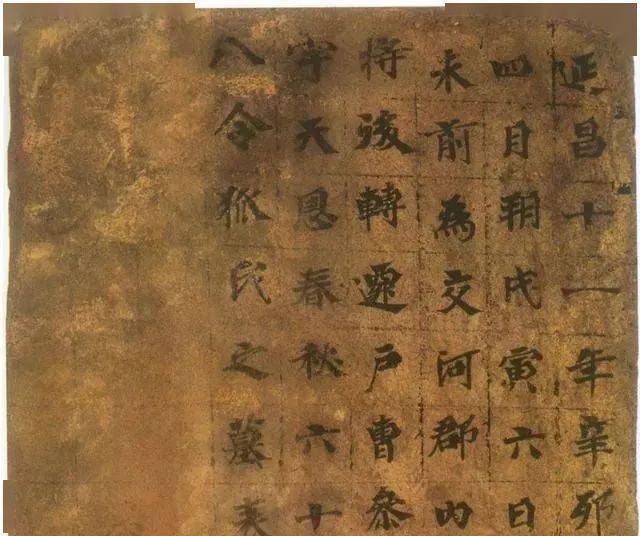 延昌十一年辛卯
四月朔戊寅六日
未前為交河郡内
将後轉遷戶曹叅
字天恩春秋六十
八令狐氏之墓表